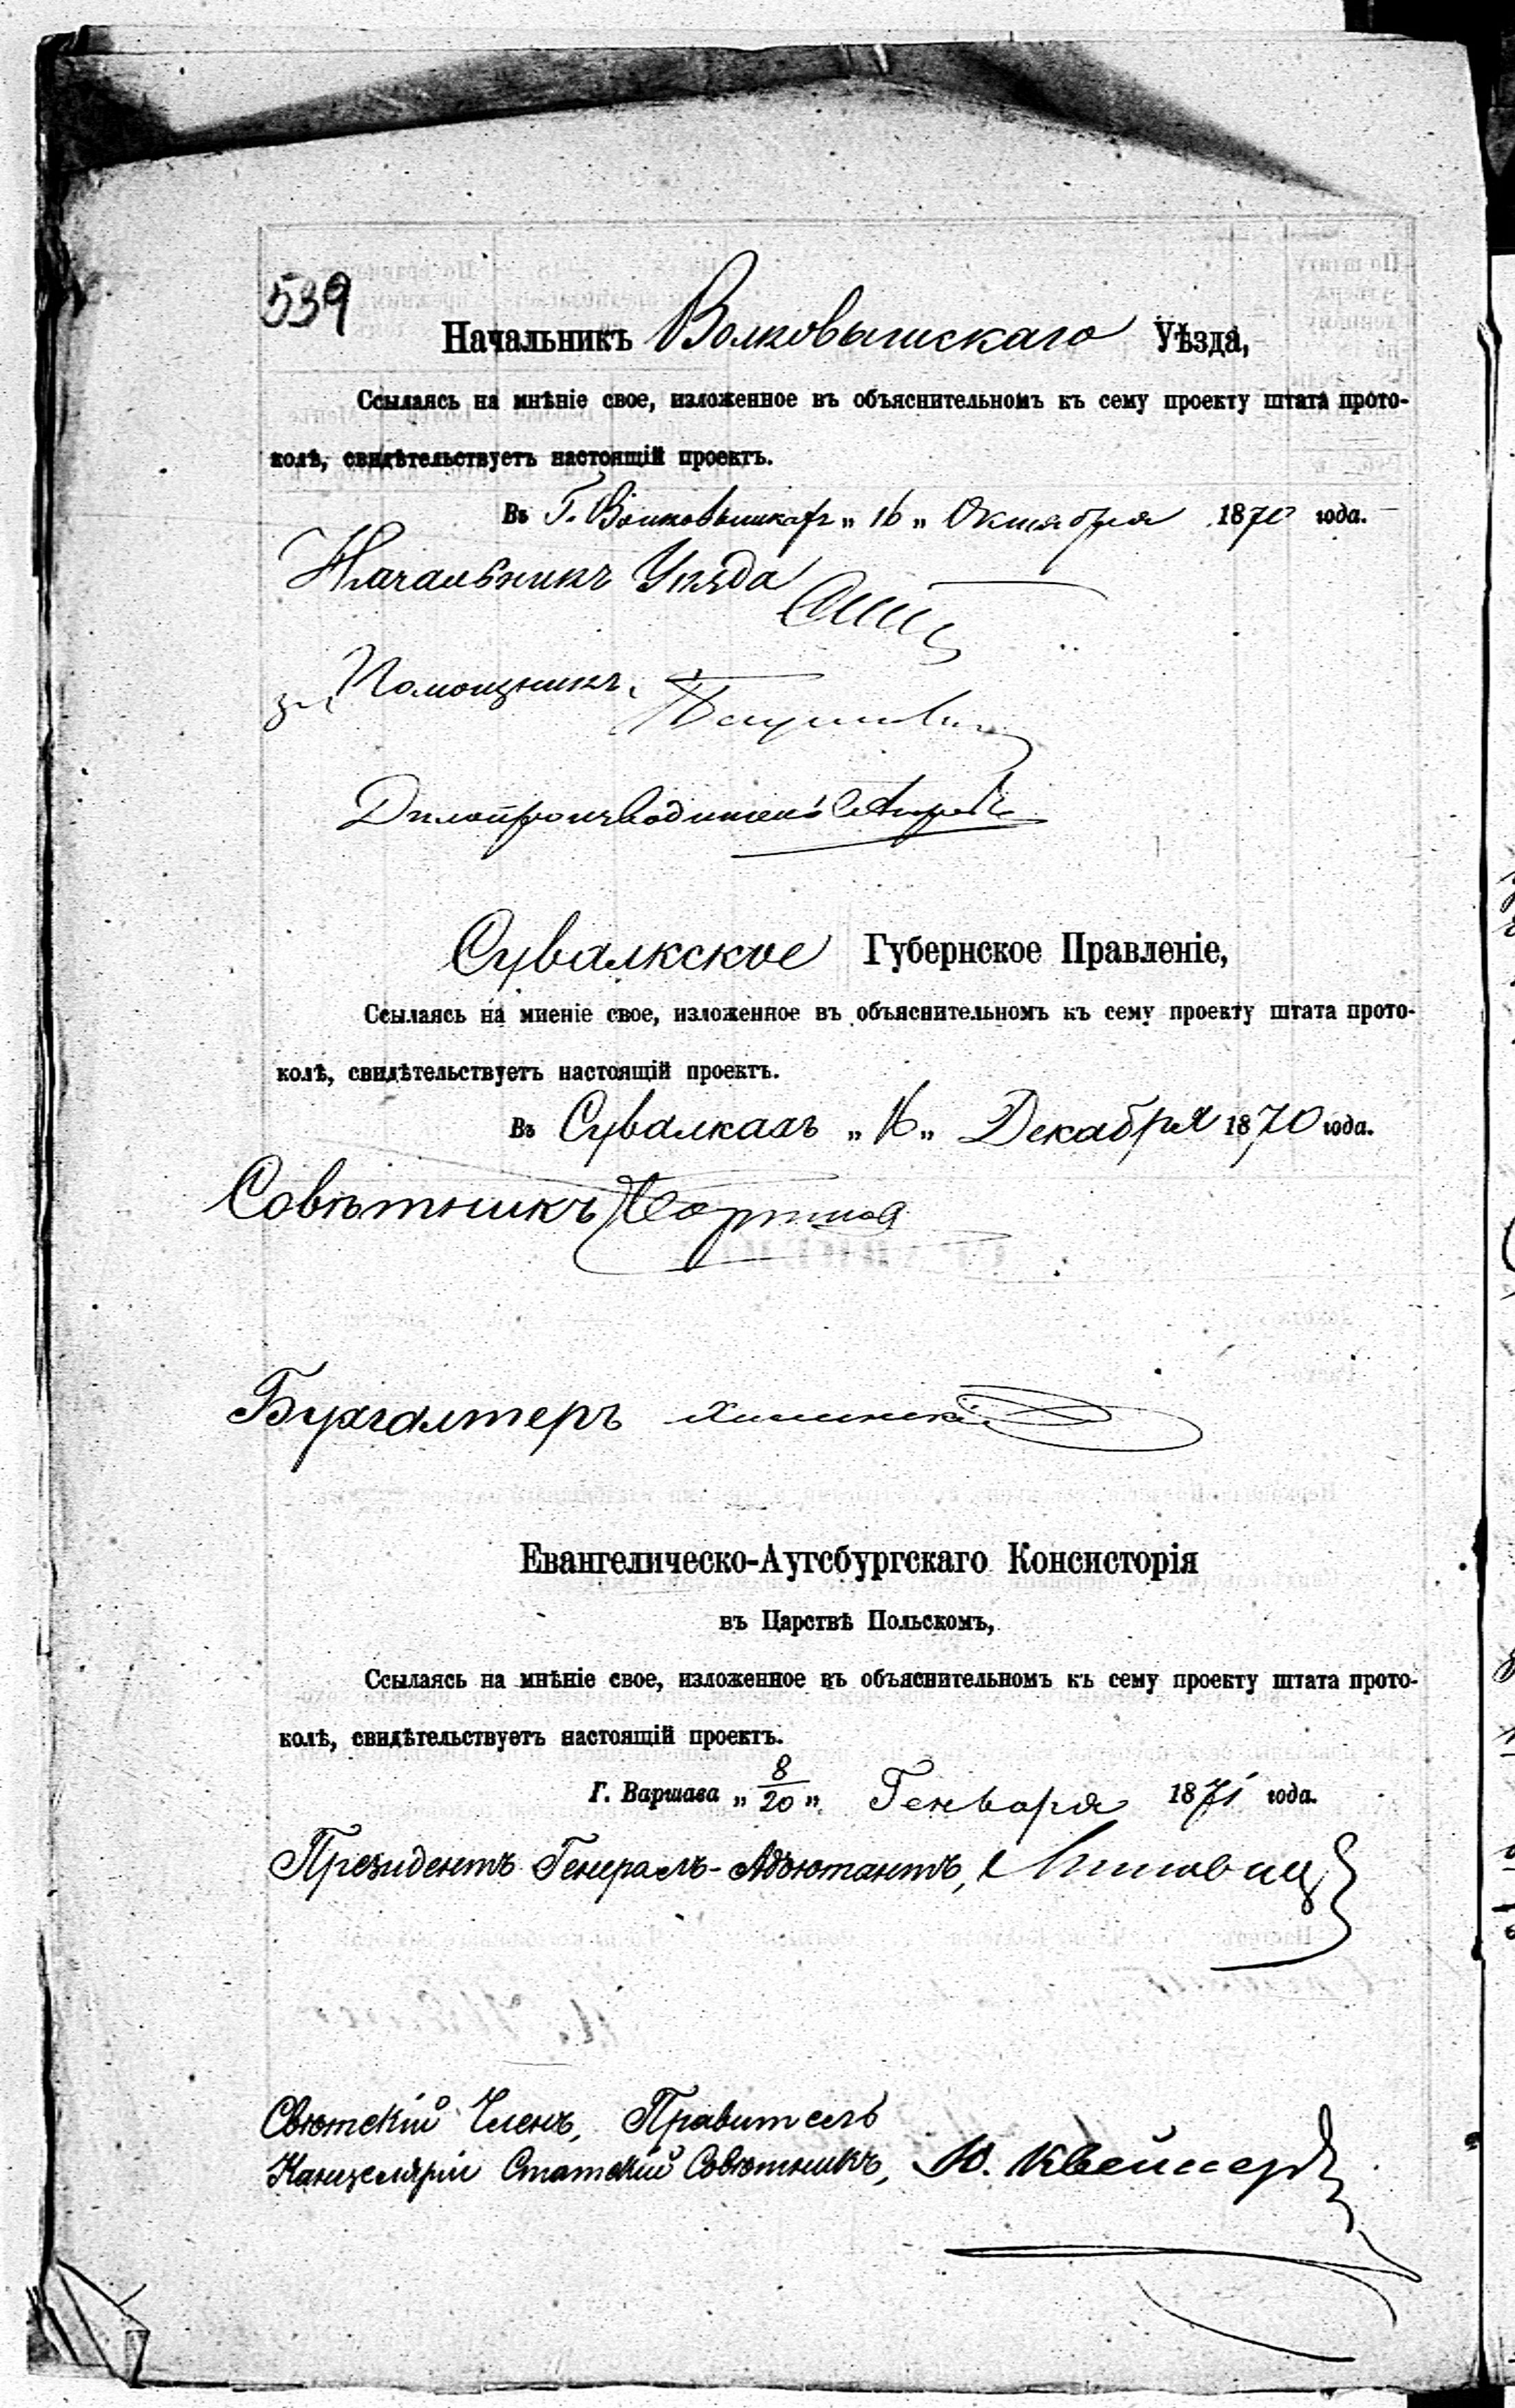 539
Начальникъ Волковышскаго Уѣзда,
Ссылаясь на мнѣніе свое, изложенное въ объяснительномъ къ сему проекту штата прото-
колѣ, свидѣтельствуетъ настоящій проектъ.
Въ Г. „ 16 „ Октября 1870 года.
Начальникъ Уѣзда
Помощникъ
Дѣлопроизводитель
Сувалкское Губернское Правленіе,
Ссылаясь на мненіе свое, изложенное въ объяснительномъ къ сему проекту штата прото-
колѣ, свидѣтельствуетъ настоящій проектъ.
Въ Сувалкахъ „ 16 „ Декабря 1870 года.
Совѣтникъ
Бухгалтеръ
Евангелическо-Аугсбургскаго Консисторія
въ Царствѣ Польскомъ,
Ссылаясь на мнѣніе свое, изложенное въ объяснительномъ къ сему проекту штата прото-
колѣ, свидѣтельствуетъ настоящій проектъ.
Г. Варшава „ 8/20 „ Генваря 1871 года.
Президентъ Генералъ-Адъютантъ,
Свѣтскій Членъ, Правитель
Канцеляріи Статскій Совѣтникъ, Ю.